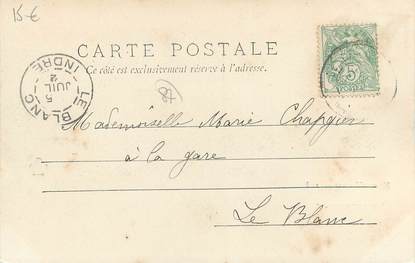 15 €
CARTE POSTALE
Ce côté est exclusivement réservé à l'adresse.
LE BLANC
INDRE
5
JUIL
2
5
Mademoiselle Marie Chapgier
à la gare
Le Blanc